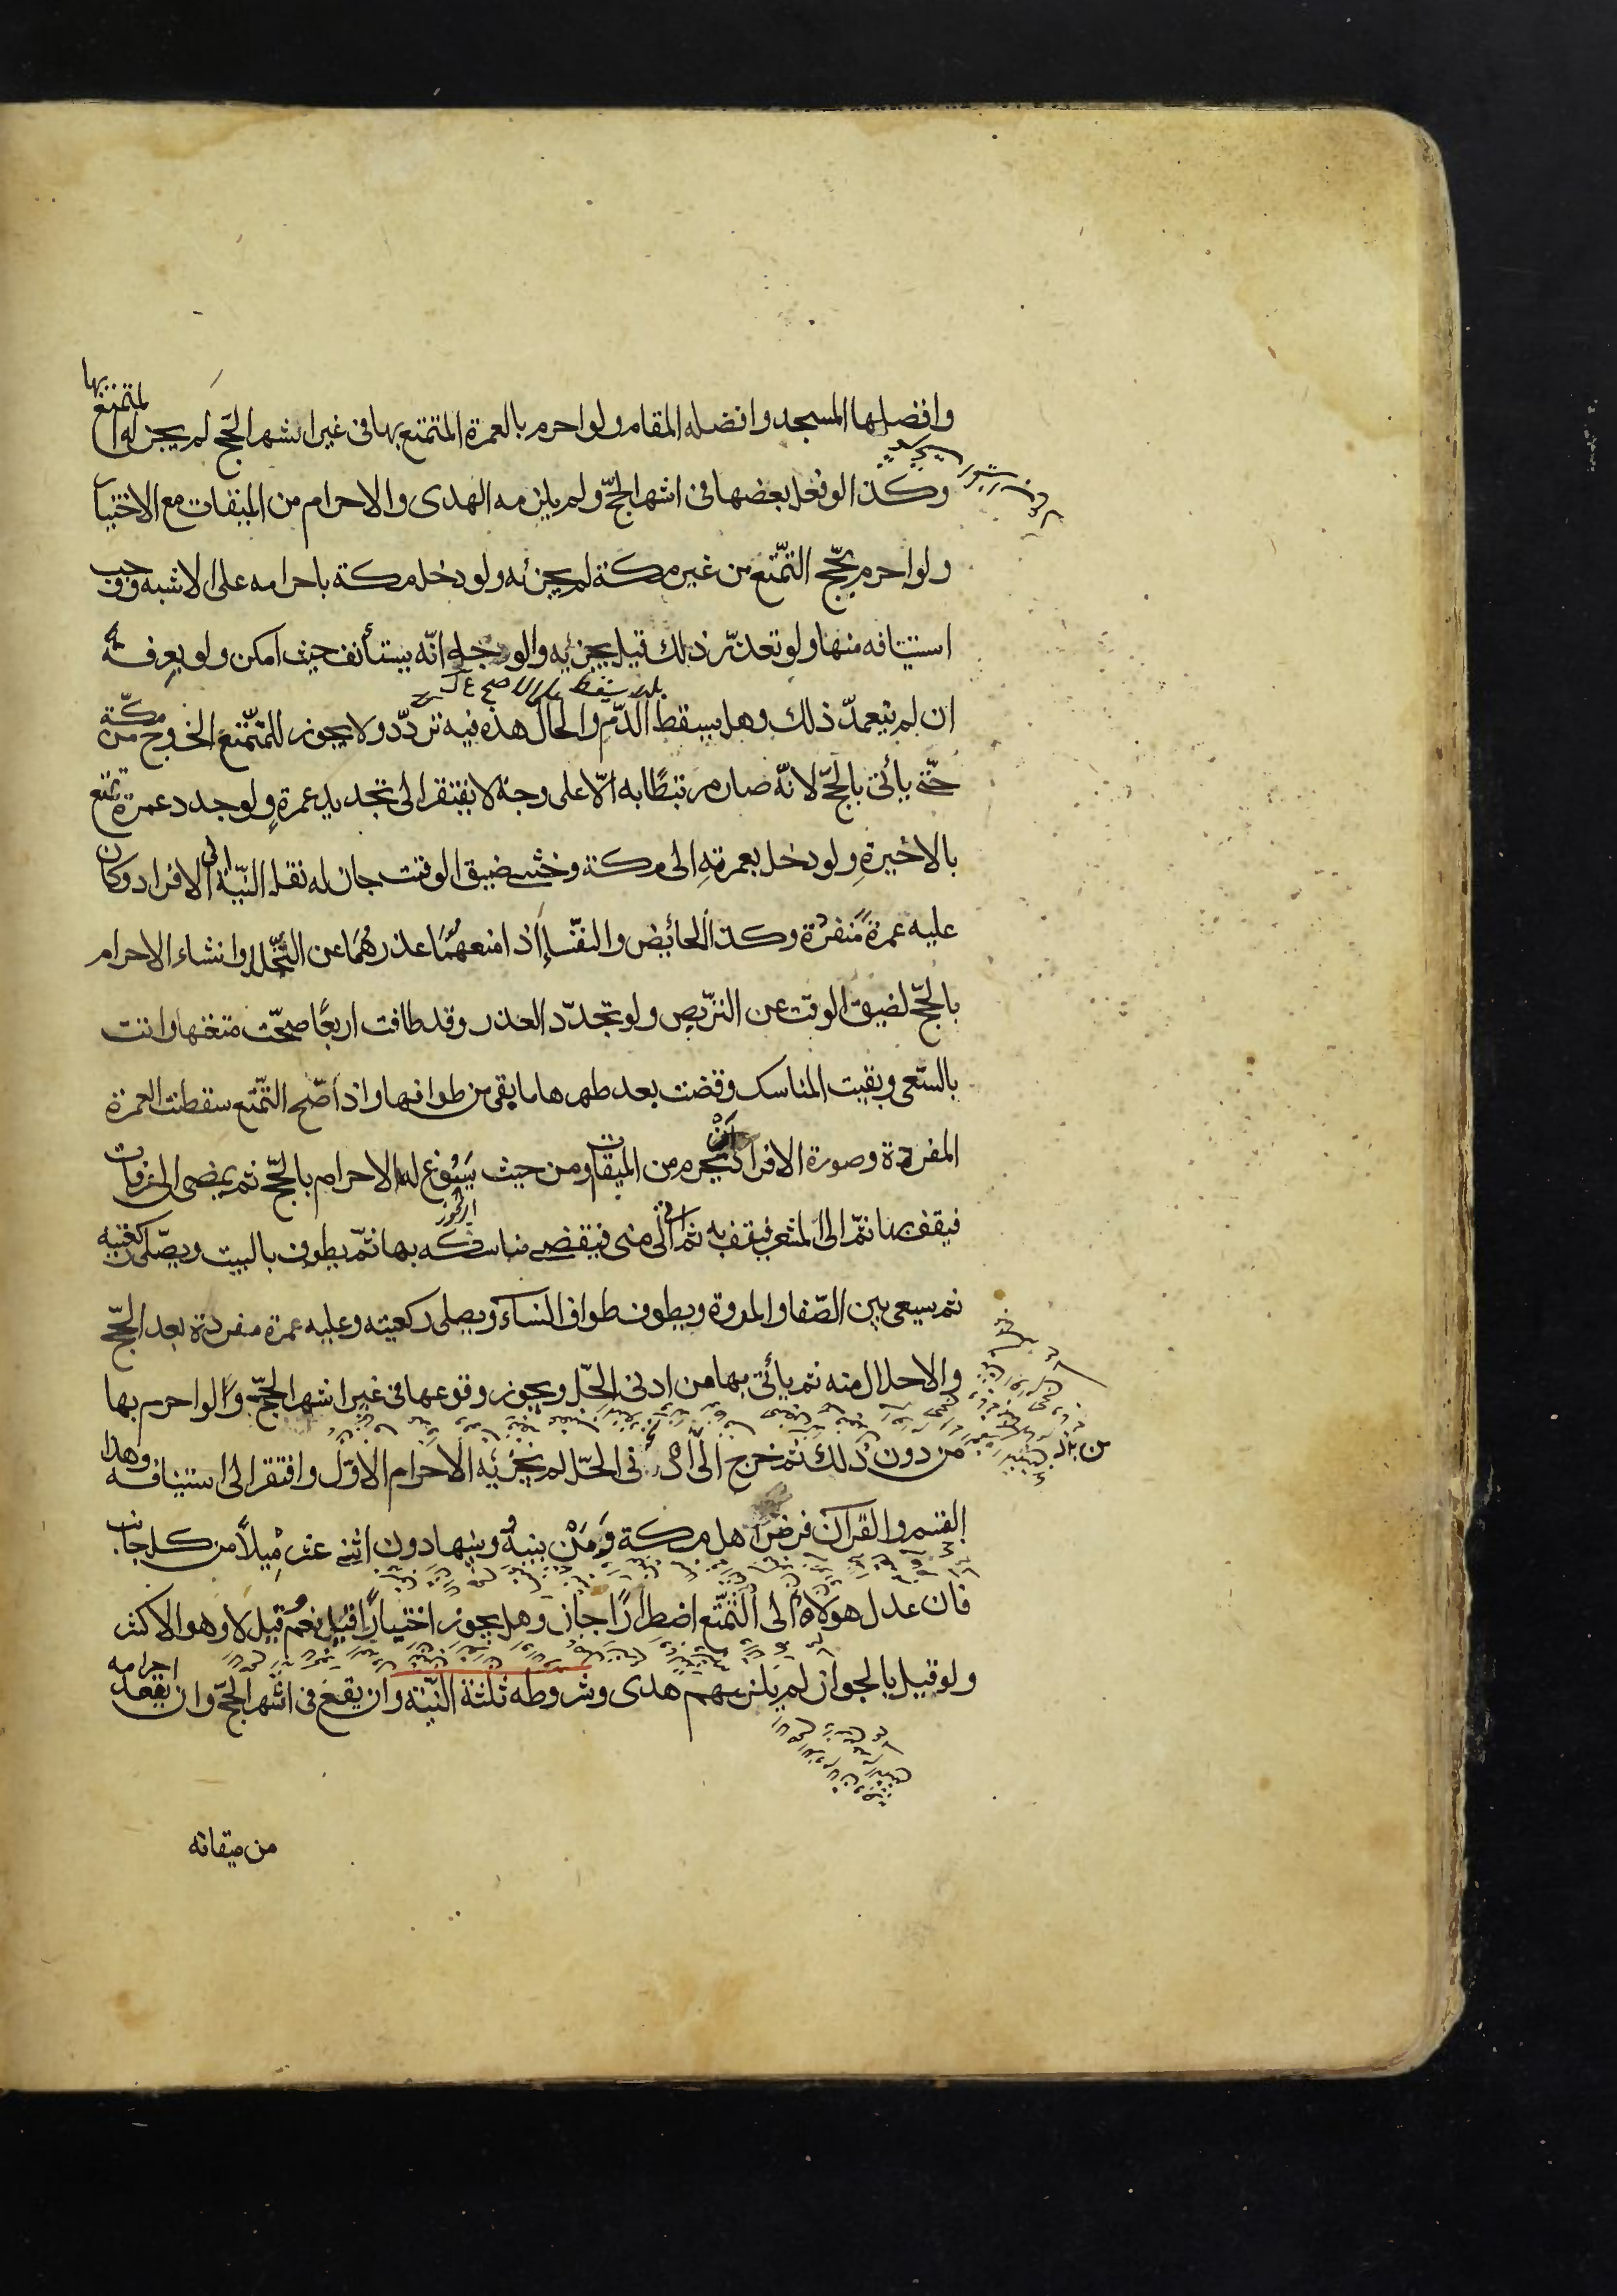 وافضلها المسجد وافضله المقام ولو احرم بالعمرة المتمتع بها فى غير اشهر الحج لم يجز له التمتع بها
وكذا لو فعل بعضها فى اشهر الحجّ ولم يلزمه الهدى والاحرام من الميقات مع الاختيا
ولو احرم بحجّ التمتّع من غير مكة لم يجزئه ولو دخل مكة باحرامه على الاشبه وجب
استينافه منها ولو تعذّر ذلك قيل يجزئه والوجه انّه يستأنف حيث امكن ولو بعرفة
ان لم يتعمدّ ذلك وهل يسقط الدّم والحال هذه فيه تردّد ولا يجوز للمتمتّع الخروج من مكّة
حتّى يأتى بالحجّ لانّه صار مرتبطًا به الّا على وجه لا يفتقر الى تجديد عمرةٍ ولو جدد عمرة تمتع
بالاخيرةِ ولو دخل بعمرتهِ الى مكة وخشى ضيق الوقت جاز له نقل النيّة الى الافراد وكان
عليه عمرةً مفردة وكذا الحائض والنفساء اذا منعهما عذرهما عن التّحلل وانشاء الاحرام
بالحجّ لضيق الوقت عن التربّص ولو تجدّد العذر وقد طافت اربعًا صحّت متعتها واتت
بالسّعى وبقيت المناسك وقضت بعد طهرها ما بقى من طوافها واذا صّح التمتّع سقطت العمرة
المفردة وصورة الافراد ان يحرم من الميقات ومن حيث يسُوغ له الاحرام بالحجّ ثم يمضى الى عرفات
فيقف بها ثمّ الى المشعر فيقف به ثم الى منى فيقضى مناسكه بها ثمّ يطوف بالبيت ويصلّى ركعتيه
ثم يسعى بين الصّفا والمروة ويطوف طواف النساء ويصلى ركعتيه وعليه عمرة مفردة بعد الحجّ
والاحلال منه ثم يأتى بها من ادنى الحِلّ ويجوز وقوعها فى غير اشهر الحجّ ولو احرم بها
من دون ذلك ثم خرج الى ادنى الحلّ لم يجزئه الاحرام الاوّل وافتقر الى استينافه وهذا
القسم والقرآن فرض اهل مكة ومَنْ بينهُ وبينها دون اثنى عشر مِيلًا من كل جانب
فان عدل هولاء الى التّمتّع اضطرارًا جاز وهل يجوز اختيارًا قيل نعم وقيل لا وهو الاكثر
ولو قيل بالجواز لم يلزمهم هدى وشروطه ثلثة النيّة وان يقع فى اشهر الحجّ وان يعقد احرامه
من ميقاته